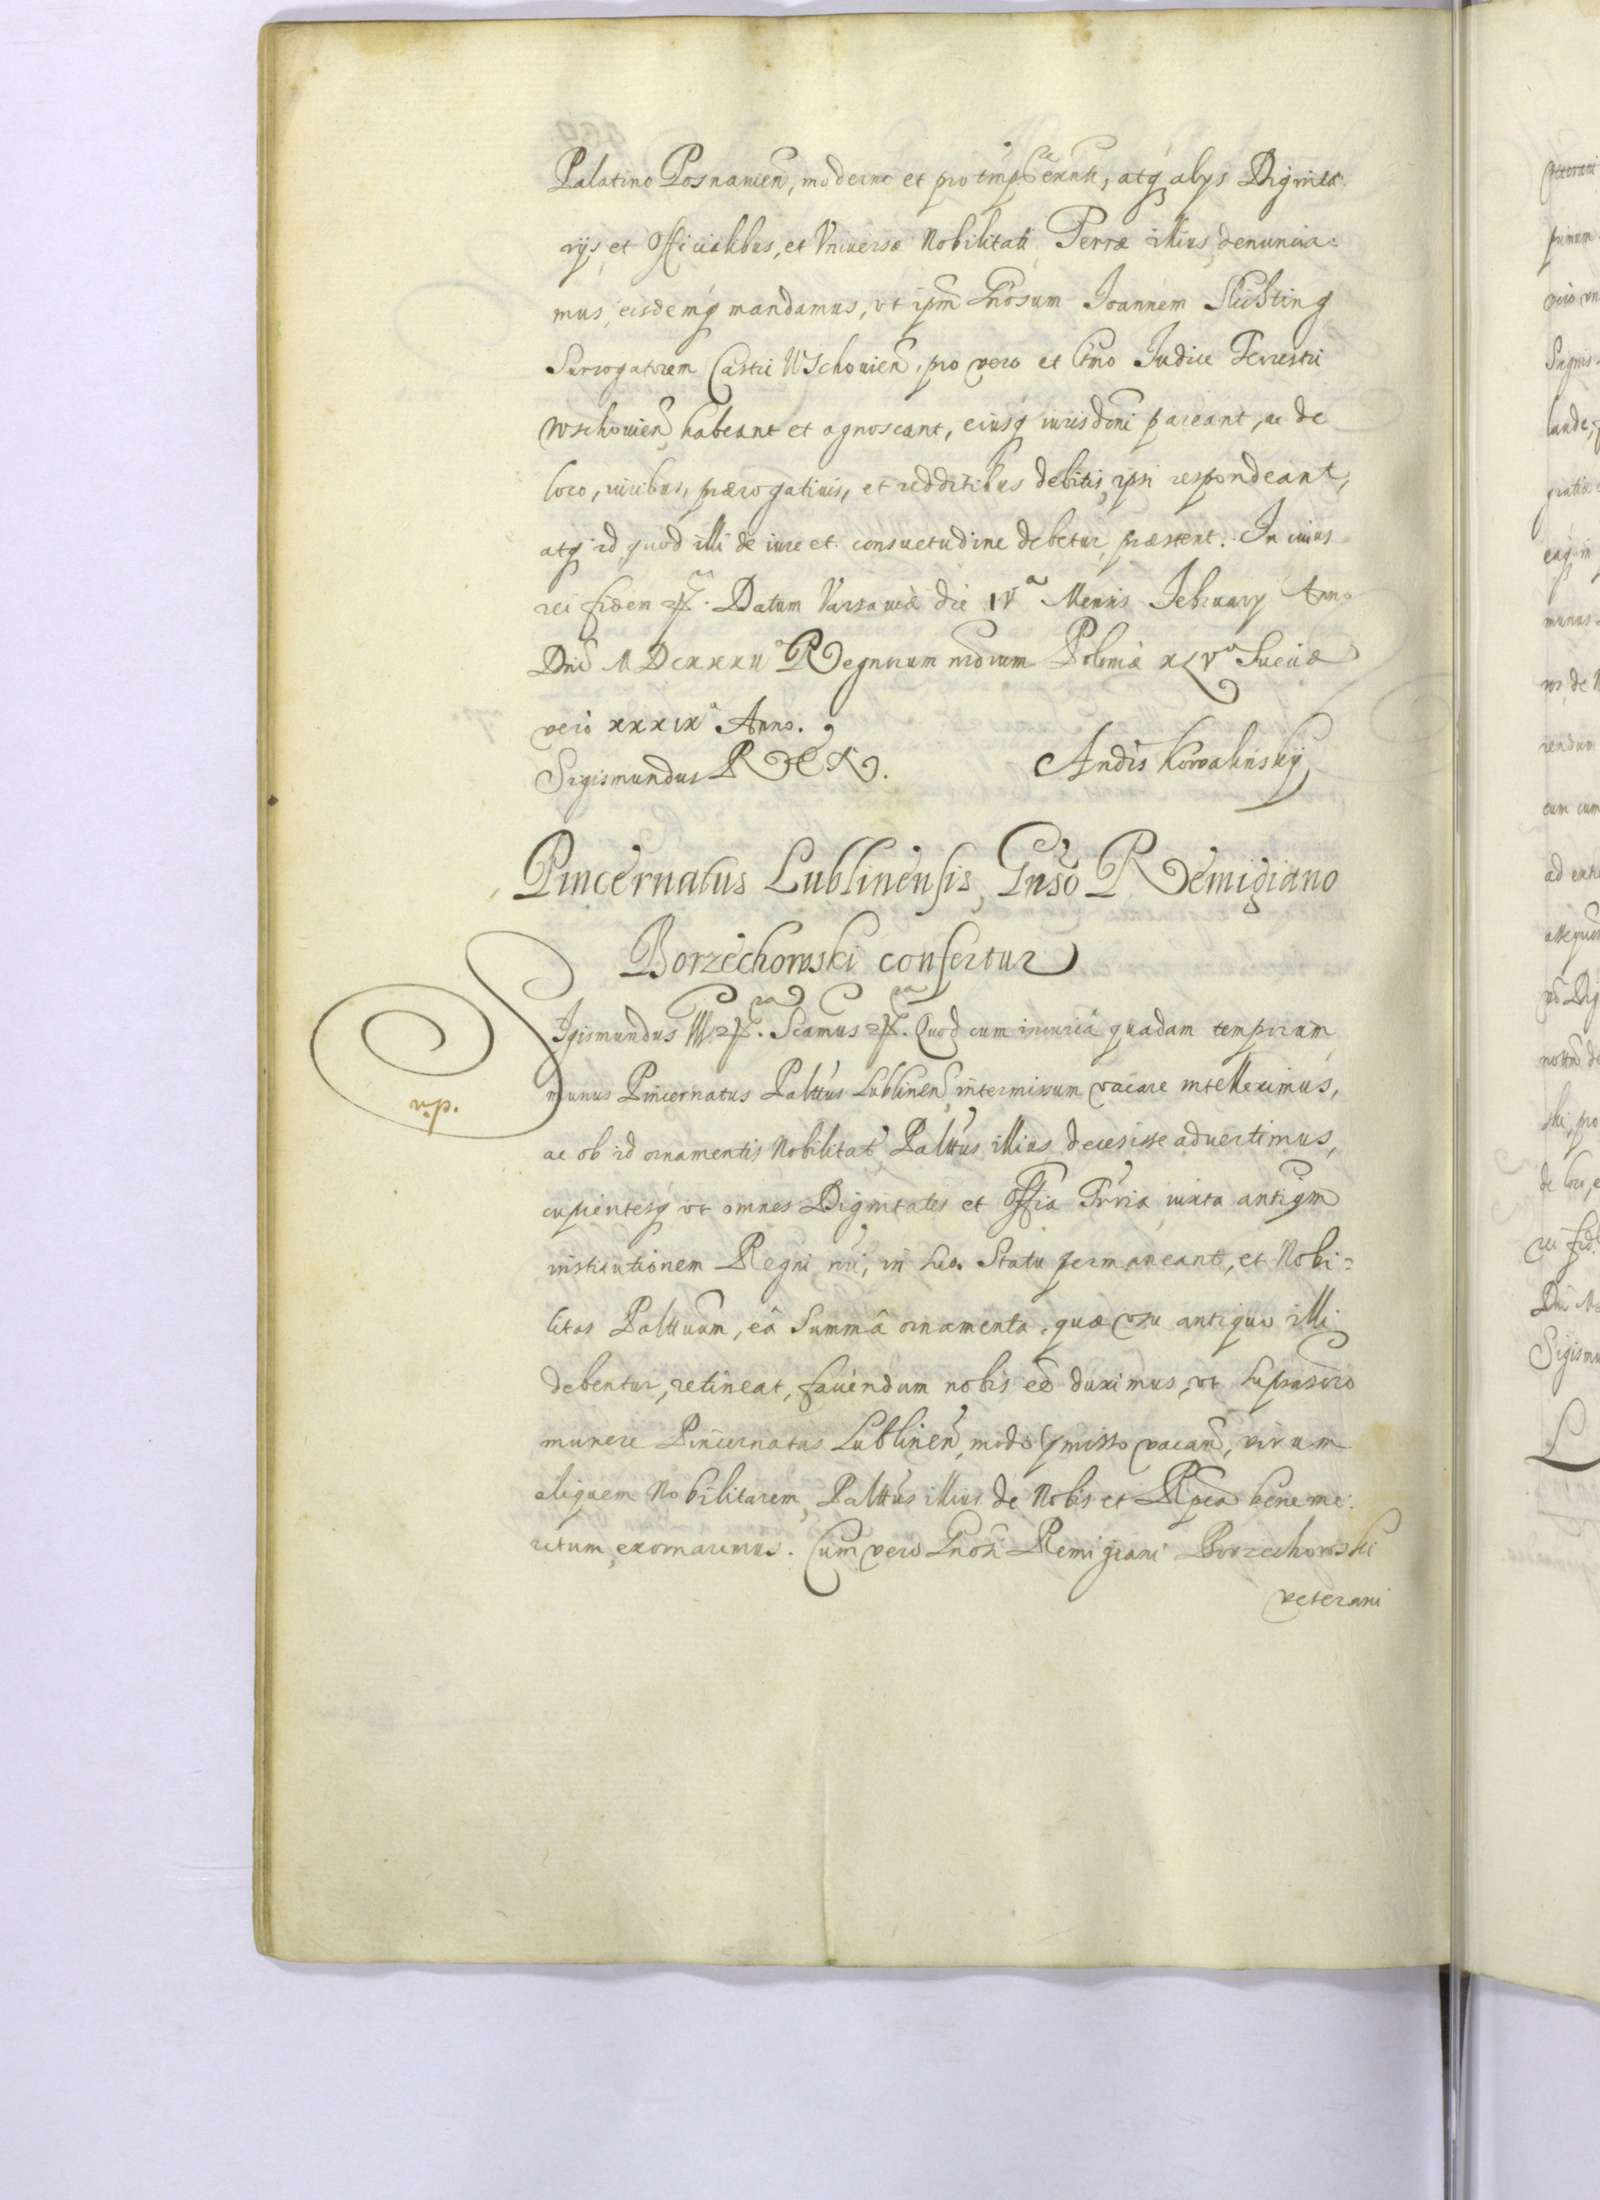 Palatino Posnanien, moderno et pro tmpe exnti, atq alys Dignita
rijs, et Officialibus, et Vniversæ Nobilitati Terræ illius, denuncia=
mus, eisdemq mandamus, vt ipm Gnosum Joannem Slichting
Surrogatorem Castri WSchouien, pro vero et ltmo Judice Terrestri
wschouien, habeant et agnoscant, eiusq iurisdoni pareant, ac de
loco, iuribus, prærogatiuis, et redditibus debitis, ipsi respondeant,
atq id quod illi de iure et consuetudine debetur, præstent. In cuius
rei fidem. Datum Varsauiæ die IVa Mensis February Anno
Dni MDCXXXIIo Regnorum nrorum Poloniæ XLVo Sueciæ
vero xxxixo Anno.
Sigismundus REX.
Andis Kowalinskij
Pincernatus Lublinensis, Gnso Remigiano
Borzechowski confertur
SIgismundus III. Scamus. Quod cum incuriâ quadam temporum
v.p.
munus Pincernatus Palttus Lublinen, intermissum vacare intellexerimus,
ac ob id ornamentis Nobilitat Palttus illius decesisse aduertimus,
cupientesq vt omnes Dignitates et Offia Trria, iuxta antiqm
institutionem Regni nri, in suo Statu permaneant, et Nobi=
litas Palttuum, eâ Summâ ornamenta, quæ vsu antiquo illi
debentur, retineat, favendum nobis eê duximus, vt suprascro
munere Pincernatus Lublinen, modo pmisso vacan, virum
aliquem Nobilitarem, Palttus illius de Nobis et Rpca bene me=
ritum, exornaremus. Cum vero Gnosi Remigiani Borzechowski
veterani